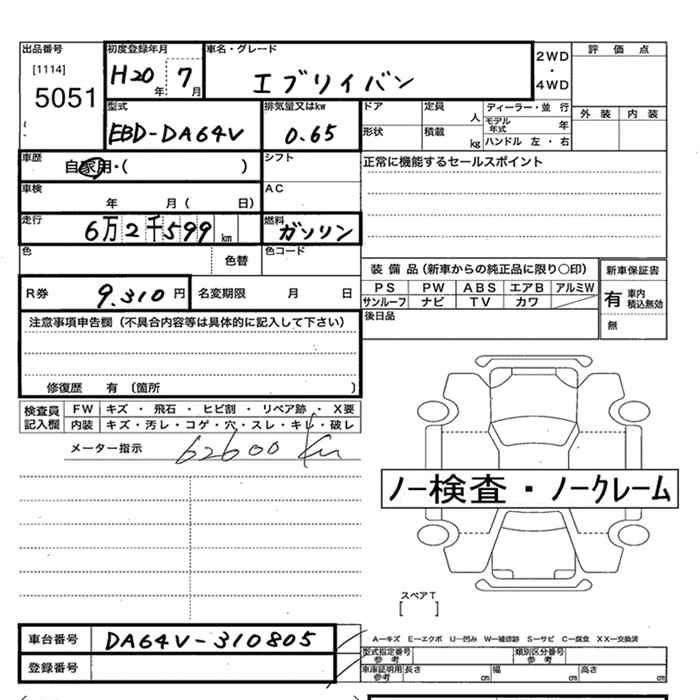 出品番号 初度登録年月 車名・グレード 2WD ・ 4WD 評価点
[1114]
5051 H20年 7月 エブリイバン
型式 排気量又はkw ドア 定員 人 ディーラー・並行 外装 内装
EBD-DA64V 0.65 形状 積載 kg モデル年式 年
ハンドル 左・右
車歴 自家用・( ) シフト 正常に機能するセールスポイント
車検 年 月( 日) AC
走行 6万2千599km 燃料 ガソリン
色 色替 色コード
装備品(新車からの純正品に限り○印) 新車保証書
PS PW ABS エアB アルミW 有 車内積込無効
サンルーフ ナビ TV カワ 無
R券 9.310円 名変期限 月 日
後日品
注意事項申告欄(不具合内容等は具体的に記入して下さい)
修復歴 有 (箇所 )
検査員記入欄 FW キズ・飛石・ヒビ割・リペア跡・X要
内装 キズ・汚レ・コゲ・穴・スレ・キレ・破レ
メーター指示 62600 Km
ノー検査・ノークレーム
スペアT
[ ]
車台番号 DA64V-310805
A―キズ E―エクボ U―凹み W―補修跡 S―サビ C―腐食 XX―交換済
型式指定番号 参考 類別区分番号 参考
登録番号 車庫証明用参考 長さ cm 幅 cm 高さ cm